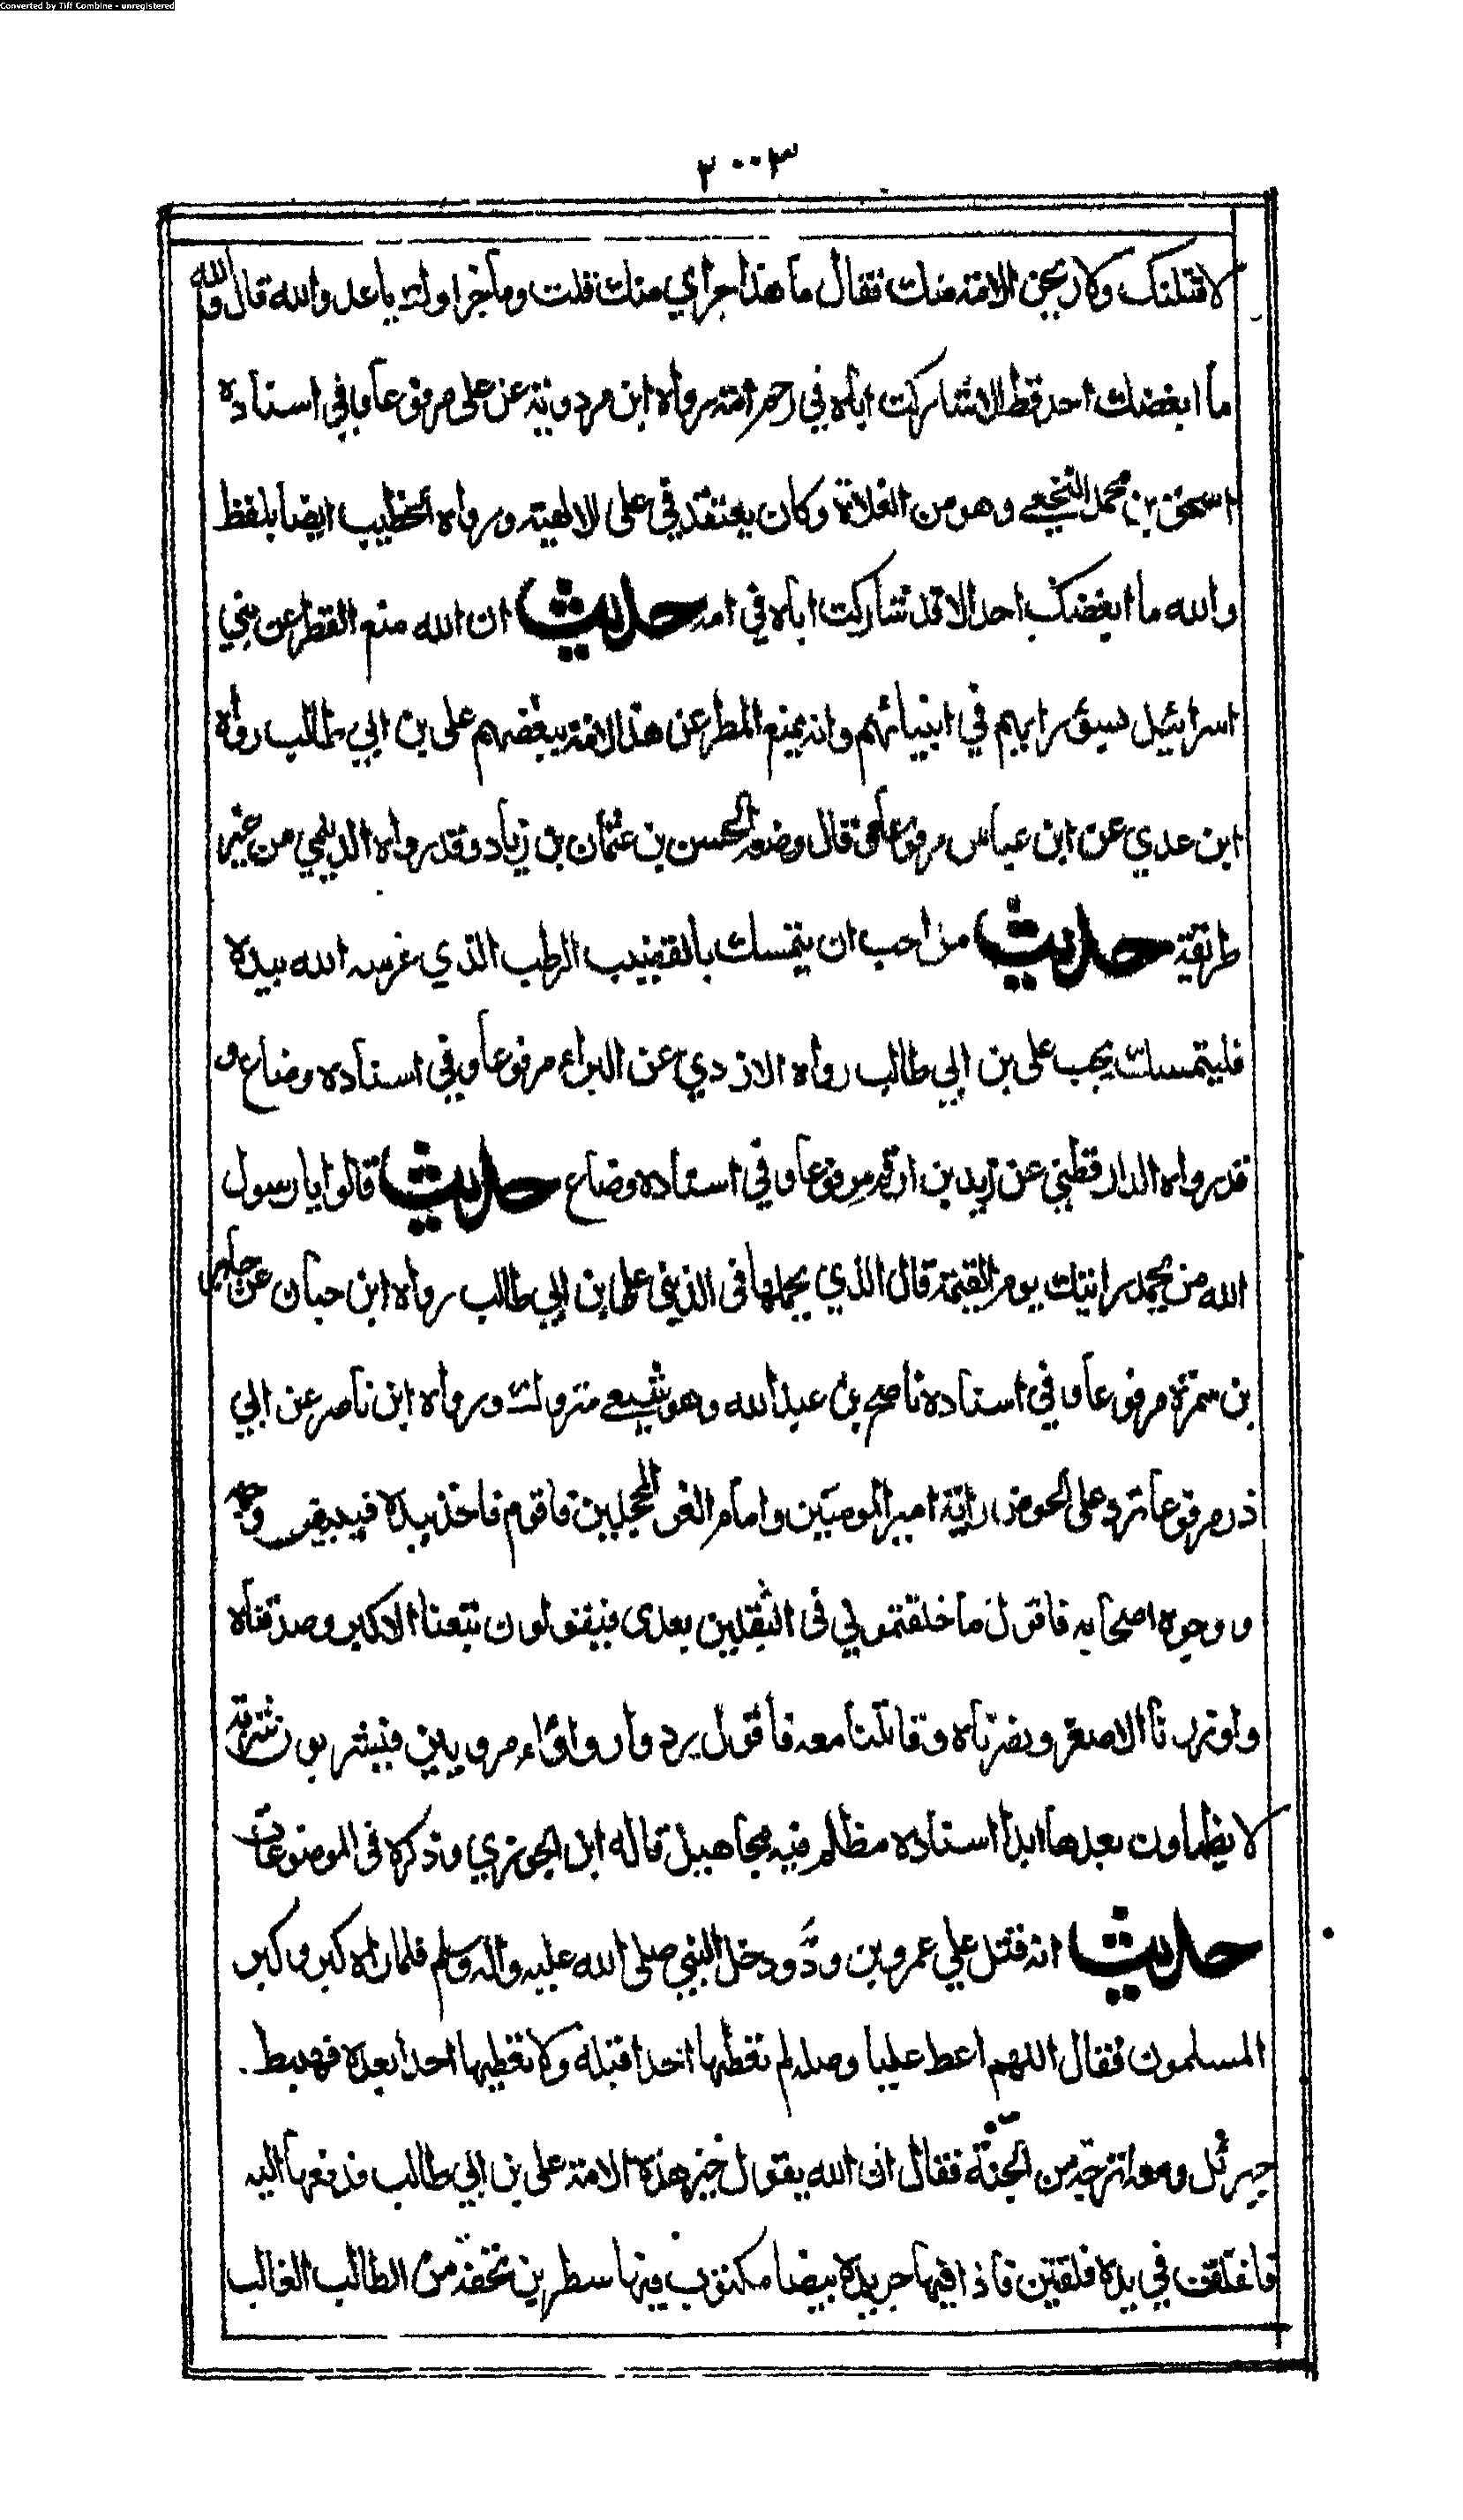 Converted by Tiff Combine - unregistered
٢٠٠٣
لاقتلنك ولاريحن الامة منك فقال ما هذا جزاي منك قلت وما جزاولك يا عدو الله قال والله
ما ابغضك احد قط الا شاركت اباه في رحم امه رواه ابن مردوية عن علي مرفوعا وفي اسناده
اسحق بن محمد النخعي وهو من الغلاة وكان يعتقد في علي الالهية ورواه الخطيب ايضا بلفظ
والله ما ابغضك احد الا قد شاركت اباه في امه حديث ان الله منع القطر عن بني
اسرائيل بسوء رايهم في انبيائهم وانه يمنع المطر عن هذه الامة ببغضهم علي بن ابي طالب رواه
ابن عدي عن ابن عباس مرفوعا وقال وضعه الحسن بن عثمان بن زياد وقد رواه الديلمي من غير
طريقة حديث من احب ان يتمسك بالقضيب الرطب الذي غرسه الله بيده
فليتمسك بحب علي بن ابي طالب رواه الازدي عن البراء مرفوعا وفي اسناده وضاع و
قد رواه الدارقطني عن زيد بن ارقم مرفوعا وفي اسناده وضاع حديث قالوا يا رسول
الله من يحمل رايتك يوم القيمة قال الذي يحملها في الدنيا علي بن ابي طالب رواه ابن حبان عن جابر
بن سمرة مرفوعا وفي اسناده ناصح بن عبد الله وهو شيعي متروك ورواه ابن ناصر عن ابي
ذر مرفوعا ترد علي الحوض راية امير المومنين وامام الغر المحجلين فاقوم فاخذ بيده فيبيض وجهه
ووجوه اصحابه فاقول ما خلقتموني في الثقلين بعدى فيقولون تبعنا الاكبر وصدقناه
وازرنا الاصغر ونصرناه وقاتلنا معه فاقول ردوا رواء مرويين فيشربون شربة
لا يظماون بعدها ابدا اسناده مظلم فيه مجاهيل قاله ابن الجوزي وذكره في الموضوعات
حديث انه قتل علي عمرو بن ود ودخل النبي صلى الله عليه واله وسلم فلما راه كبر وكبر
المسلمون فقال اللهم اعط عليا فضيلة لم تعطها احدا قبله ولا تعطيها احدا بعده فهبط
جبرئل ومعه اترجة من الجنة فقال ان الله يقول خير هذه الامة علي بن ابي طالب فدفعها اليه
فانفلقت في يده فلقتين فاذا فيها حريرة بيضا مكتوب فيها سطرين تحفة من الطالب الغالب